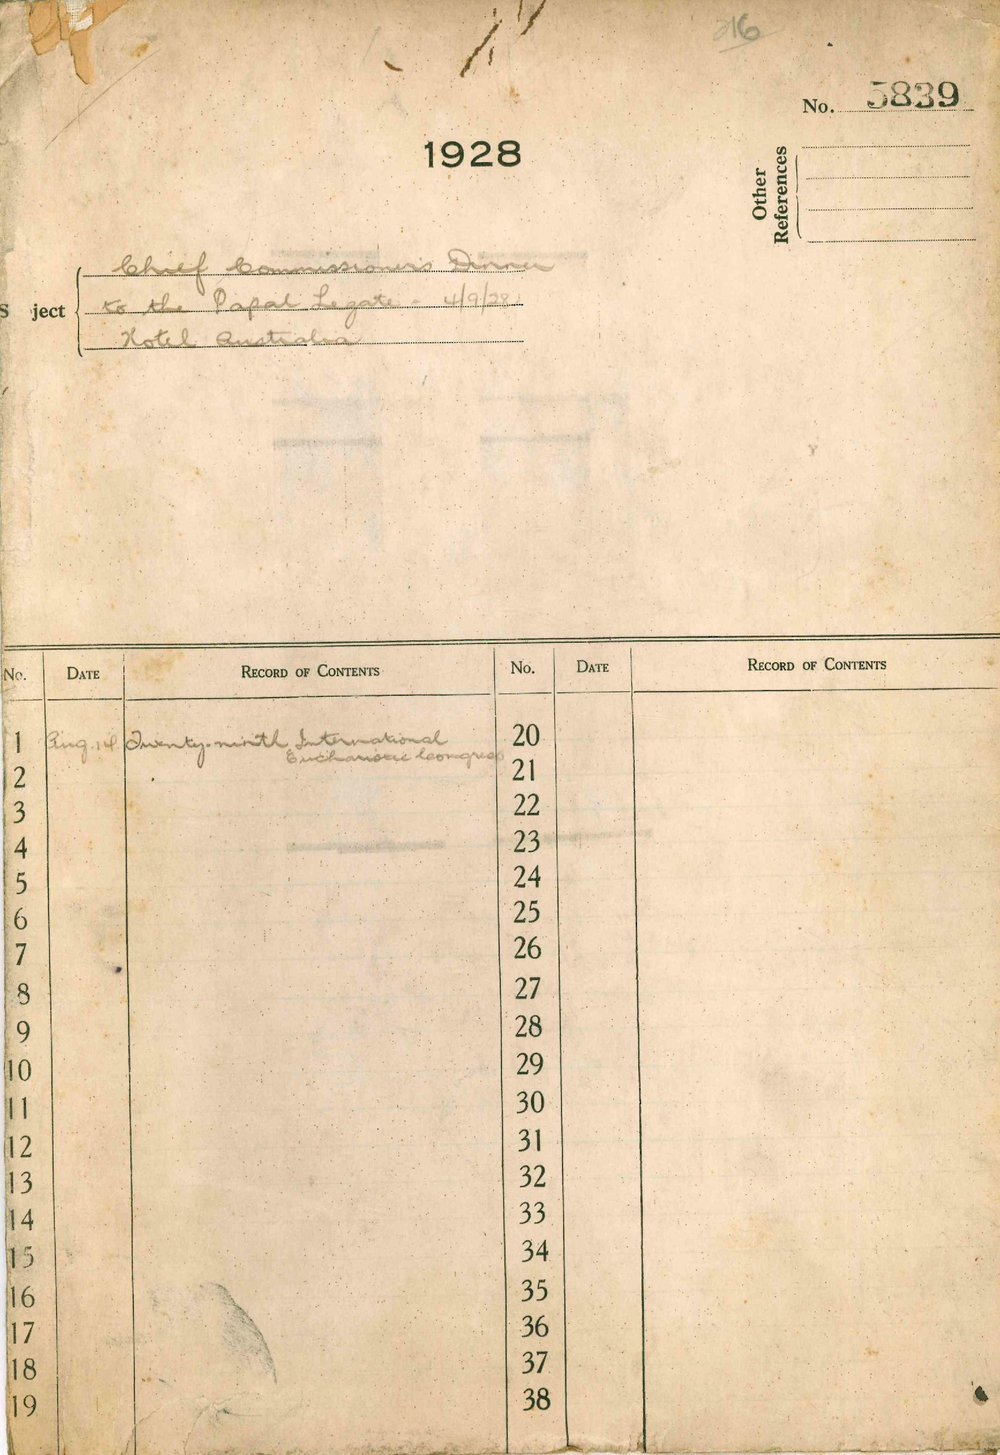 216
No. 5839
1928
Other
References
S ject
Chief Commissioner's Dinner
to the Papal Legate - 4/9/28
Hotel Australia
No. DATE RECORD OF CONTENTS No. DATE RECORD OF CONTENTS
1 Aug. 14 Twenty-ninth International 20
Eucharistic Congress
2 21
3 22
4 23
5 24
6 25
7 26
8 27
9 28
10 29
11 30
12 31
13 32
14 33
15 34
16 35
17 36
18 37
19 38